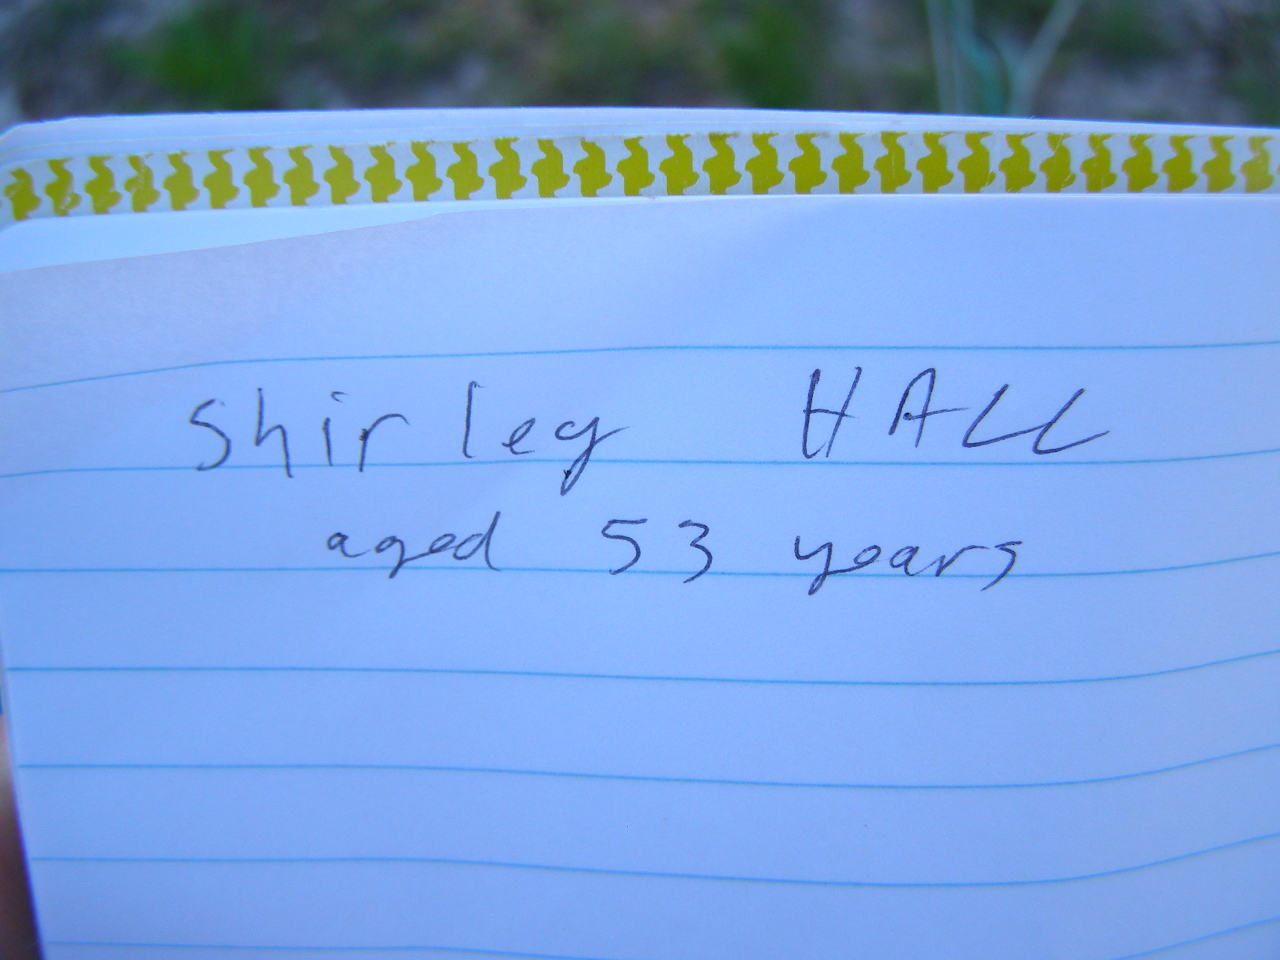 Shirley HALL
aged 53 years